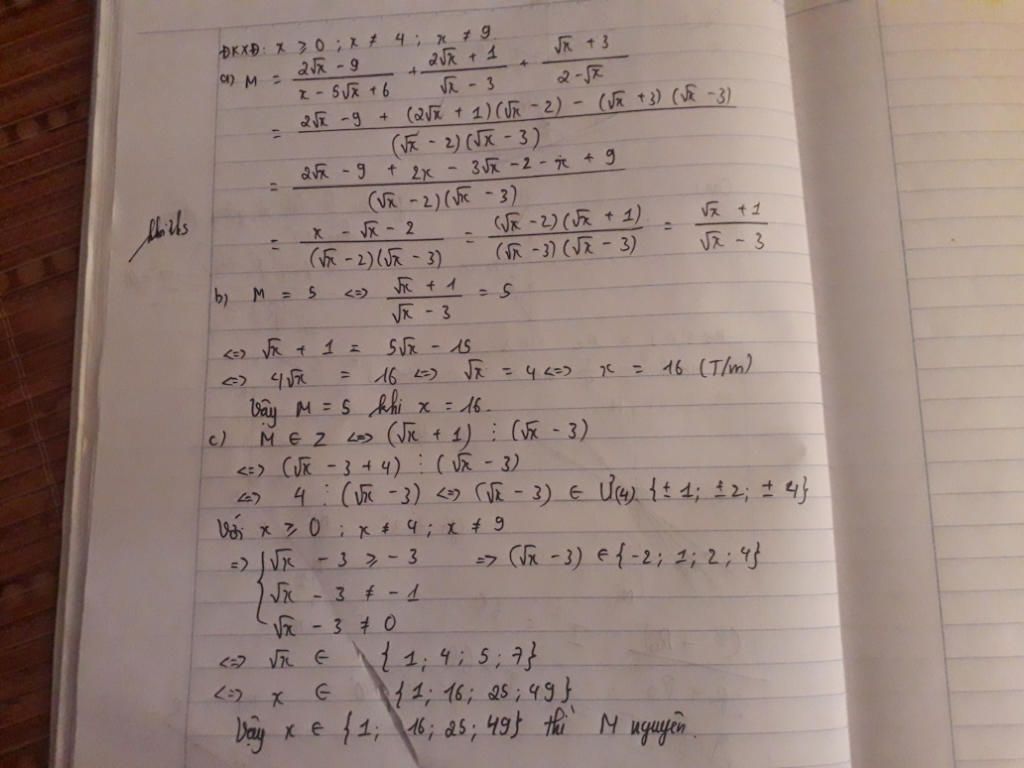 ĐKXĐ: x ≥ 0 ; x ≠ 4 ; x ≠ 9
a) M = (2√x - 9)/(x - 5√x + 6) + (2√x + 1)/(√x - 3) + (√x + 3)/(2 - √x)
= (2√x - 9 + (2√x + 1)(√x - 2) - (√x + 3)(√x - 3))/((√x - 2)(√x - 3))
= (2√x - 9 + 2x - 3√x - 2 - x + 9)/((√x - 2)(√x - 3))
= (x - √x - 2)/((√x - 2)(√x - 3)) = ((√x - 2)(√x + 1))/((√x - 3)(√x - 3)) = (√x + 1)/(√x - 3)
b) M = 5 <=> (√x + 1)/(√x - 3) = 5
<=> √x + 1 = 5√x - 15
<=> 4√x = 16 <=> √x = 4 <=> x = 16 (T/m)
Vậy M = 5 khi x = 16.
c) M ∈ Z <=> (√x + 1) ⋮ (√x - 3)
<=> (√x - 3 + 4) ⋮ (√x - 3)
<=> 4 ⋮ (√x - 3) <=> (√x - 3) ∈ Ư(4) {± 1; ± 2; ± 4}
Với x ≥ 0 ; x ≠ 4 ; x ≠ 9
=> { √x - 3 ≥ - 3 => (√x - 3) ∈ {-2; 1; 2; 4}
√x - 3 ≠ - 1
√x - 3 ≠ 0
<=> √x ∈ {1; 4; 5; 7}
<=> x ∈ {1; 16; 25; 49}
Vậy x ∈ {1; 16; 25; 49} thì M nguyên.